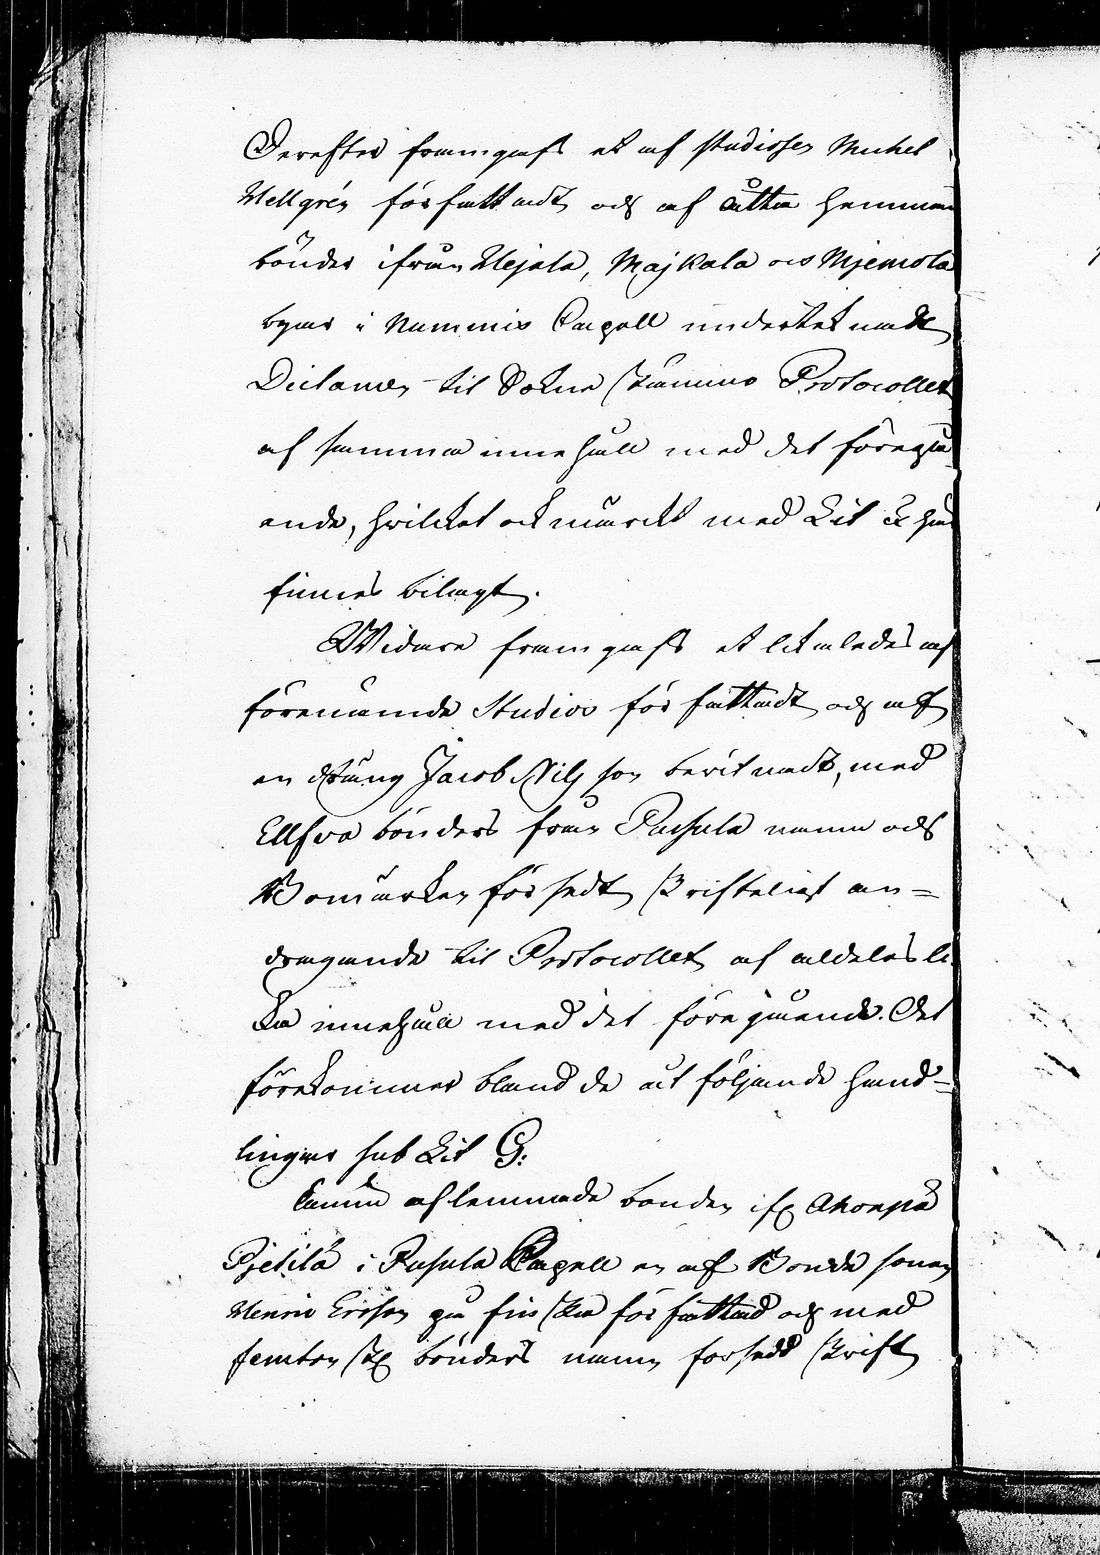 Derefter framgafs et af studiosen Michel
Hellgrén författadt, och af åtta hemmans
bönder ifrån Hejala, Majkala och Mjemola
byar i Nummis Capell underteknade
Dictamen til Sokne stämno Protocollet
af samma innehåll med det föregå
ende, hvilket ock märckt med Lit F här
finnes bilagt.
Widare framgafs et likaledes af
förenämde Studios författadt, och af
en dräng Jacob Nilsson bevitnadt, med
Ellfva bönders från Pusula namn och
Bomärken försedt skrifteligt an=
dragande til Protocollet, af aldeles li
ka innehåll med det föregående. Det
förekommer bland de åtföljande hand=
lingar sub Lit G:
Ännu aflemnade bonden ifr Ahonpä
Pjetilä i Pusula Capell en af Bonde sonen
Henric Ersson på finska författad och med
femton st bönders namn försedd skrift